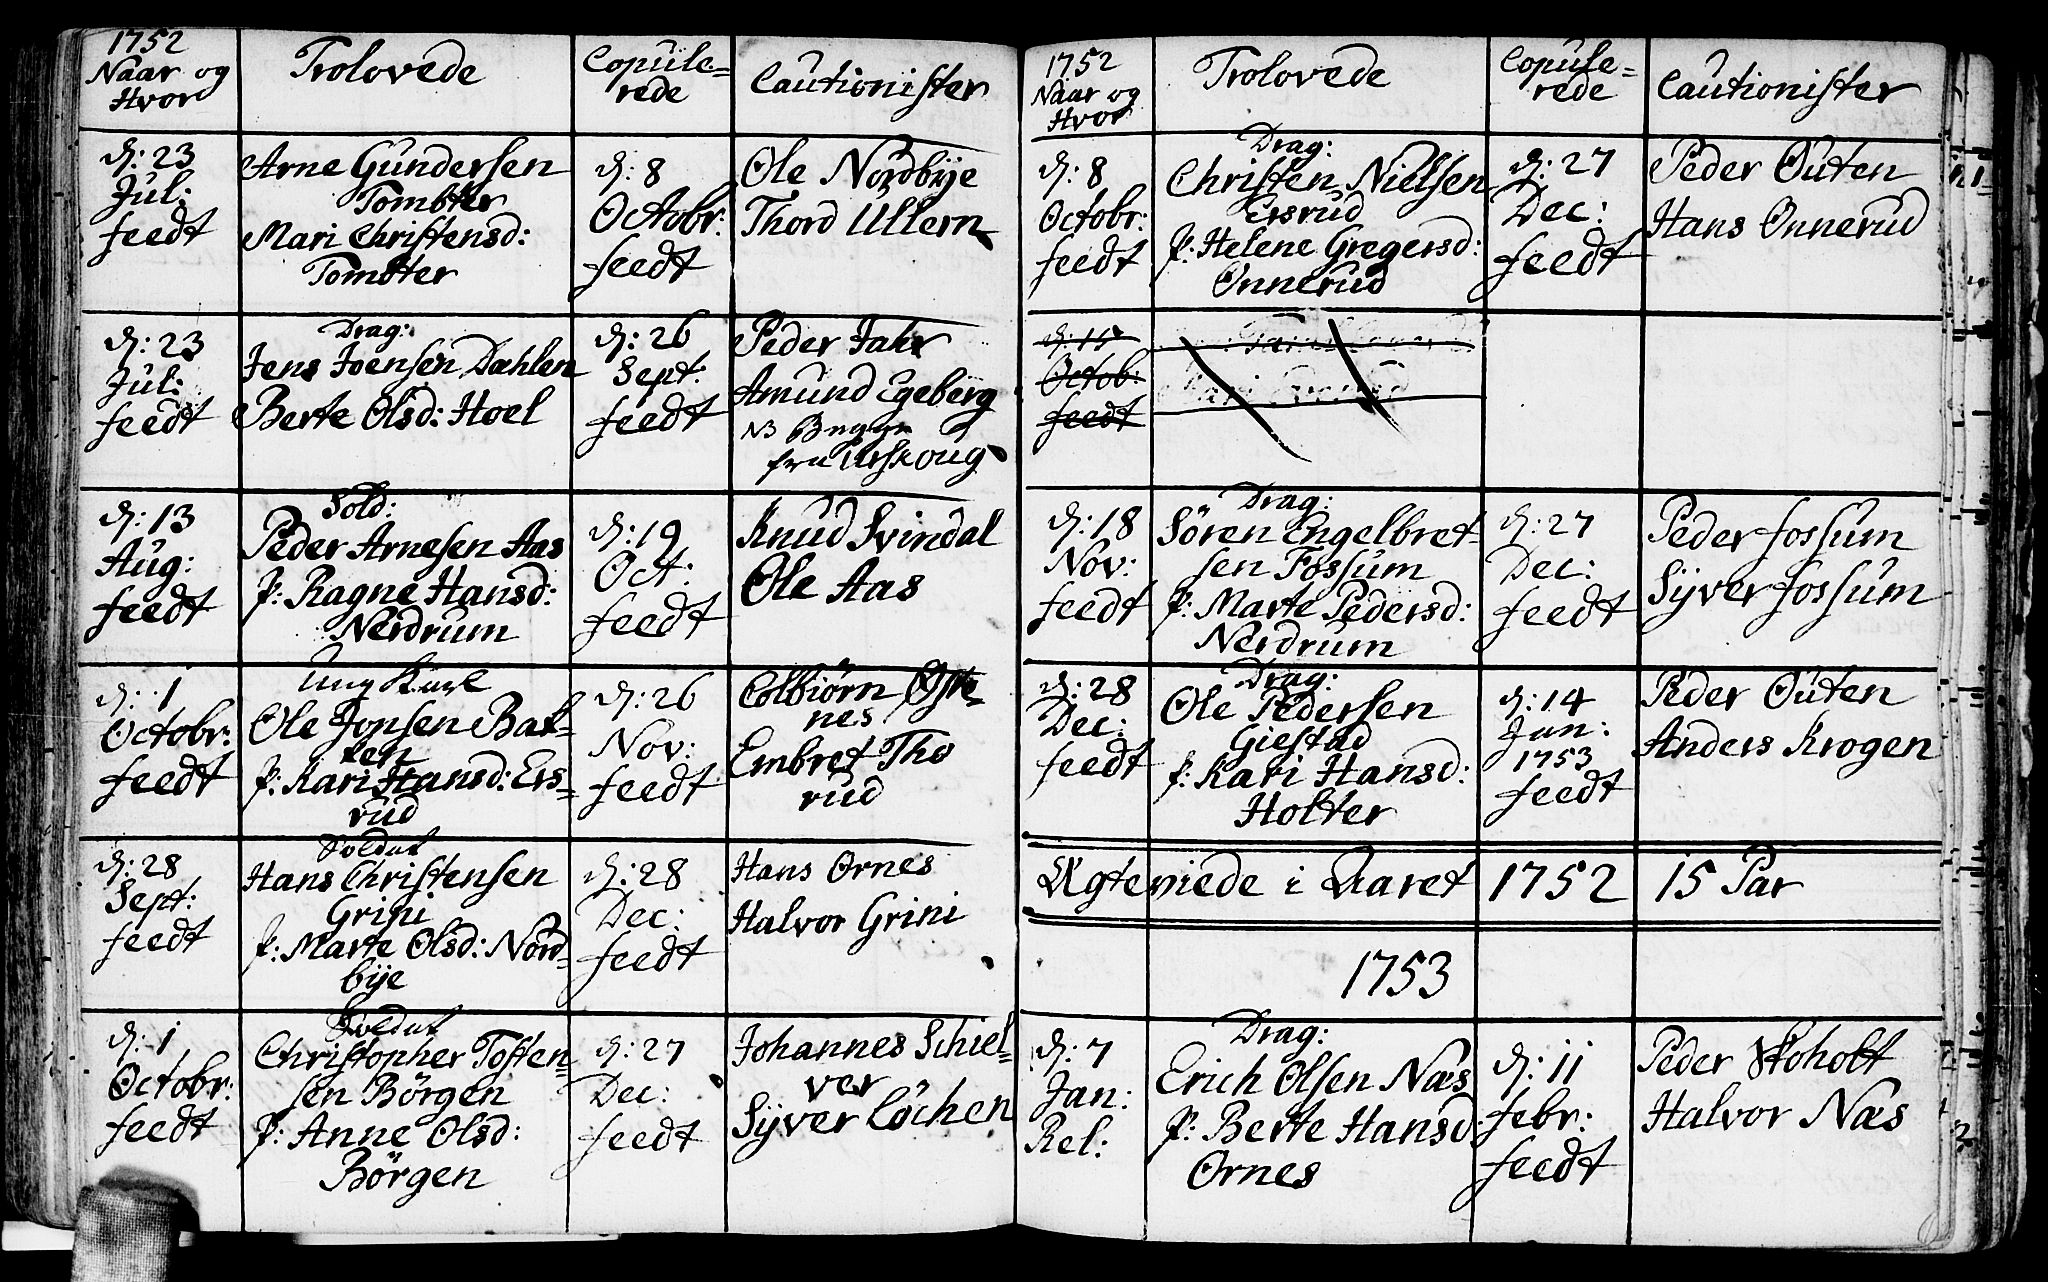 1752
Naar og
Hvor
Trolovede
Copule=
rede
Cautionister
d: 23
Jul:
feedt
Arne Gundersen
Tombter
Mari Christensd:
Tombter
d: 8
Octobr:
feedt
Ole Nordbÿe
Thord Ullern
d: 23
Jul:
feedt
Drag:
Jens Joensen Dæhlen
Berte Olsd: Hoel
d: 26
Sept:
feedt
Peder Jahr
Amund Egeberg
NB Begge
fra Urskoug
d: 13
Aug:
feedt
Sold:
Peder Arnesen Aas
P: Ragne Hansd:
Nerdrum
d: 19
Oct:
feedt
Knud Svindal
Ole Aas
d: 1
Octobr:
feedt
Ung Karl
Ole Jonsen Bak-
ken
P: Kari Hansd: Ers=
rud
d: 26
Nov:
feedt
Colbiørn
nes
Embret Tho
rud
d: 28
Sept:
feedt
Soldat
Hans Christensen
Grini
P: Marte Olsd: Nord=
bÿe
d: 28
Dec:
feedt
Hans Ornes
Halvor Grini
d: 1
Octobr:
feedt
Soldat
Christopher Tosten=
sen Börgen
P: Anne Olsd:
Börgen
d: 27
Dec:
feedt
Johannes Schiel=
ver
Sÿver Löchen
1752
Naar og
Hvor
Trolovede
Copule=
rede
Cautionister
d: 8
Octobr:
feedt
Drag:
Christen Nielsen
Ersrud
P: Helene Gregersd:
Onnerud
d: 27
Dec:
feedt
Peder Outen
Hans Onnerud
d: 15
Octob:
feedt
d: 18
Nov:
feedt
Drag:
Sören Engelbret-
sen Fossum
P: Marte Pedersd:
Nerdrum
d: 27
Dec:
feedt
Peder fossum
Sÿver fossum
d: 28
Dec:
feedt
Drag:
Ole Pedersen
Giestad
P: Kari Hansd:
Holter
d: 14
Jan:
1753
feedt
Peder Outen
Anders Krogen
Ægteviede i Aaret 1752 15 Par
1753
d: 7
Jan:
Rel:
Drag:
Erich Olsen Næs
P: Berte Hansd:
Ornes
d: 11
febr:
feedt
Peder Skoholt
Halvor Næs